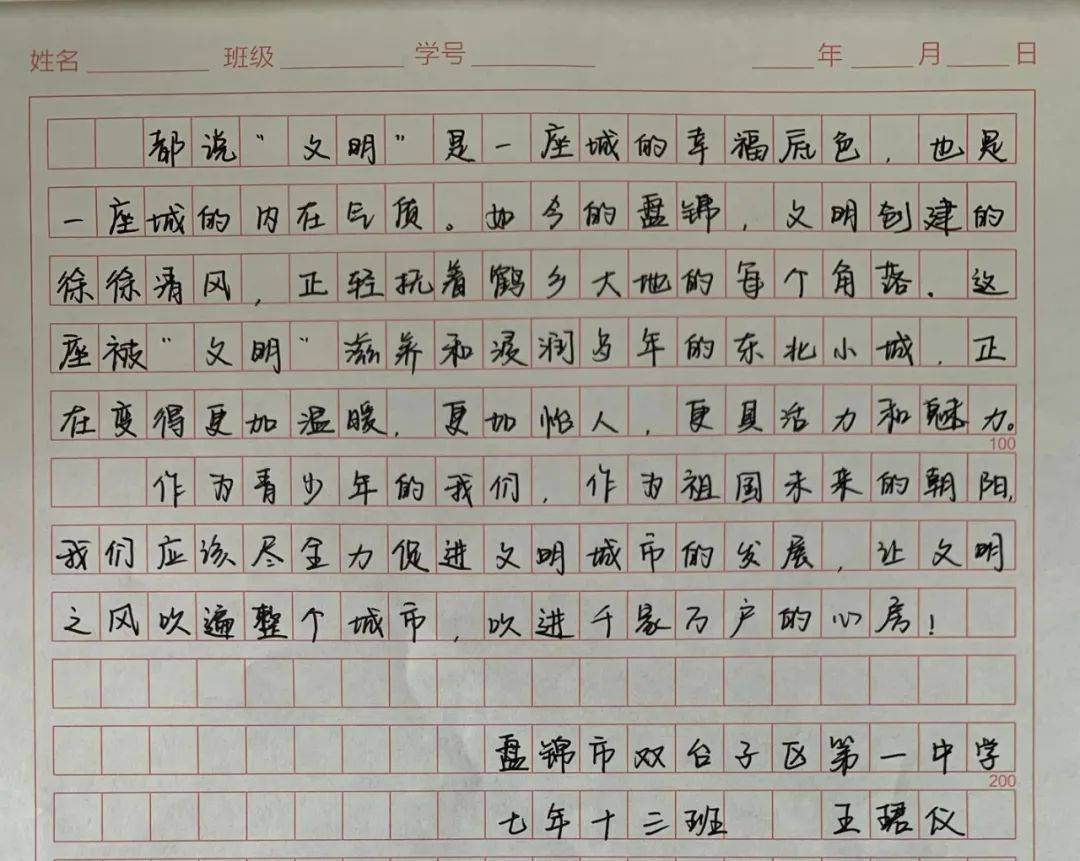 姓名 班级 学号 年 月 日
都说“文明”是一座城的幸福底色，也是
一座城的内在气质。如今的盘锦，文明创建的
徐徐清风，正轻抚着鹤乡大地的每个角落。这
座被“文明”滋养和浸润多年的东北小城，正
在变得更加温暖，更加怡人，更具活力和魅力。
100
作为青少年的我们，作为祖国未来的朝阳，
我们应该尽全力促进文明城市的发展，让文明
之风吹遍整个城市，吹进千家万户的心房！
盘锦市双台子区第一中学
200
七年十三班 王珺仪